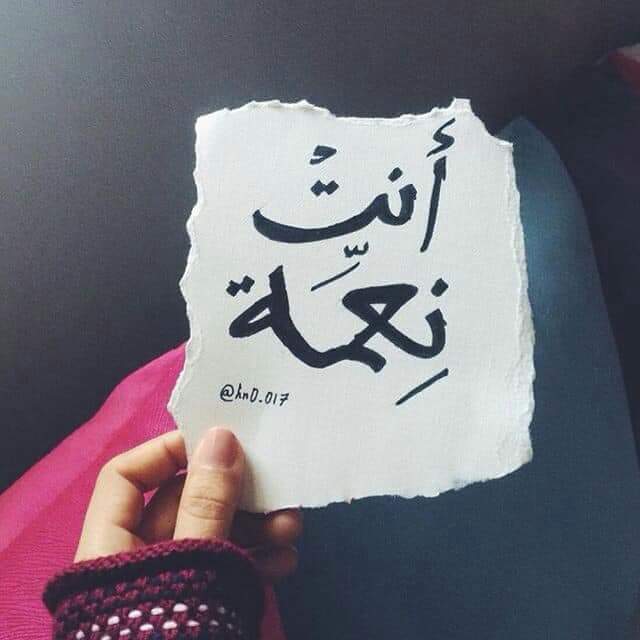 أنتْ
نِعمَّة
@hn0.017